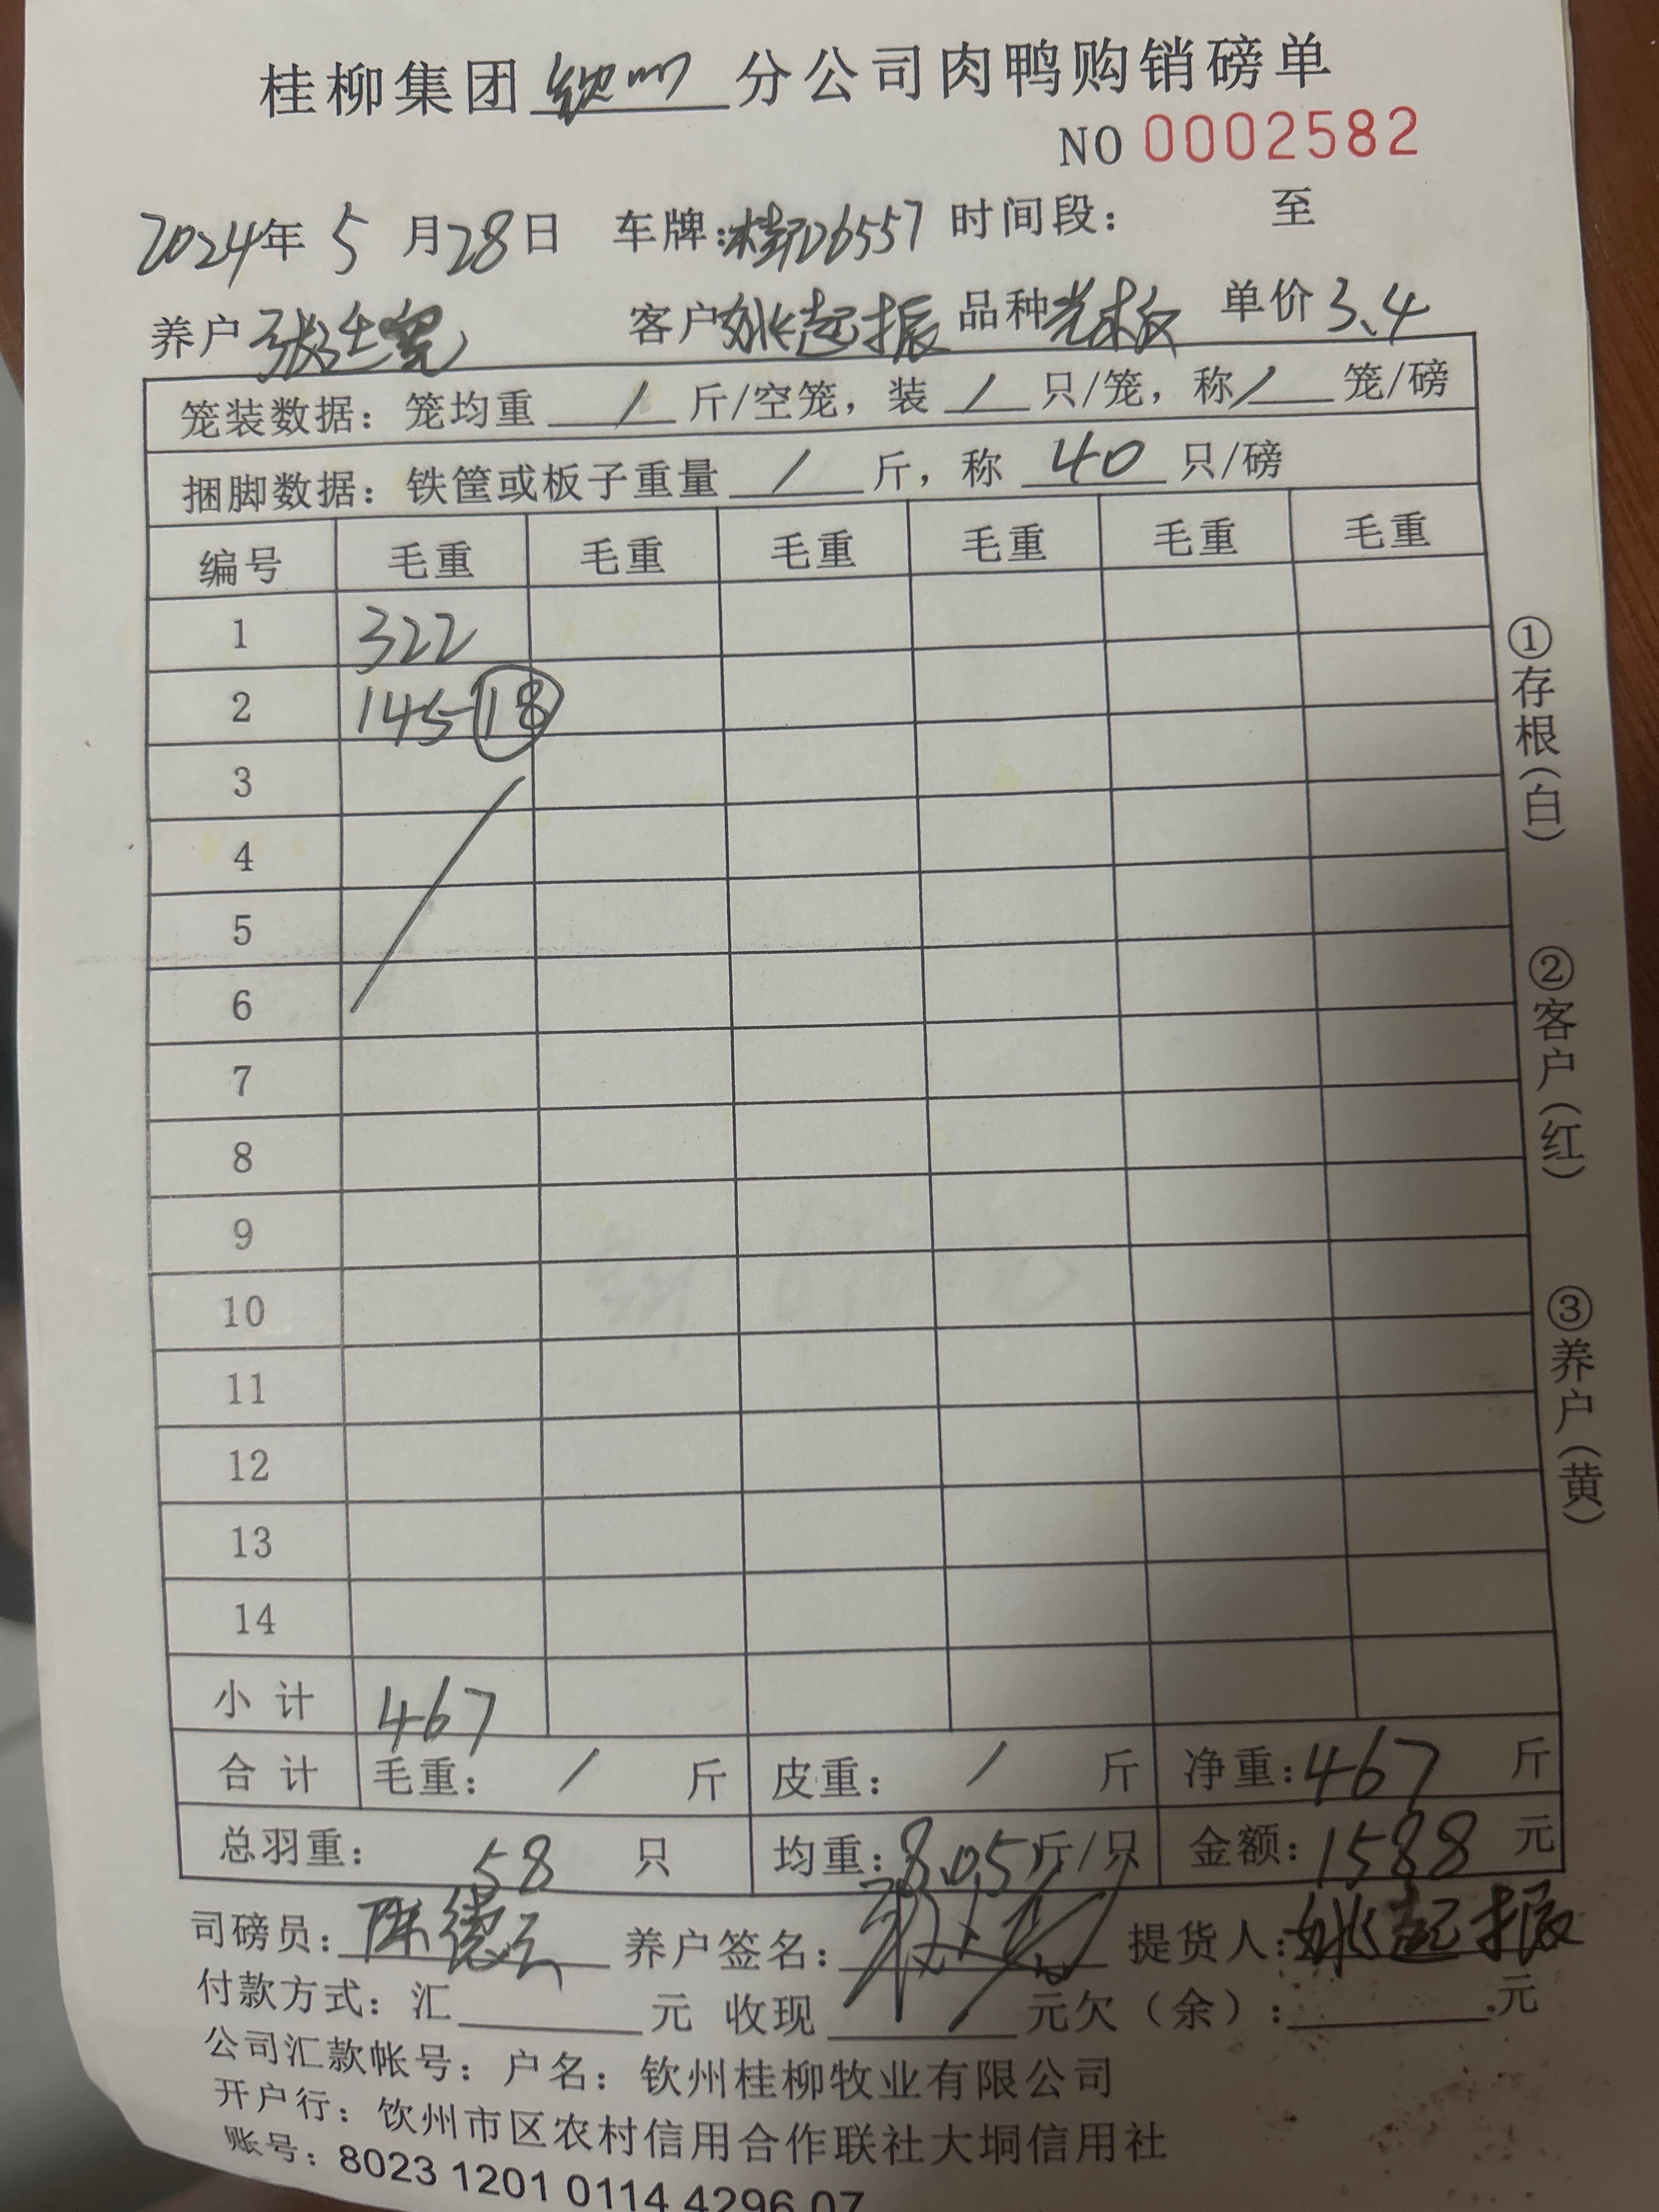 桂柳集团 钦州 分公司肉鸭购销磅单
NO 0002582
2024年 5 月28日 车牌:桂D26557 时间段: 至
养户 客户姚起振 品种 单价3.4
笼装数据：笼均重 / 斤/空笼，装 / 只/笼，称 / 笼/磅
捆脚数据：铁筐或板子重量 / 斤，称 40 只/磅
编号 毛重 毛重 毛重 毛重 毛重 毛重
1 322
2 145-18
3
4
5
6
7
8
9
10
11
12
13
14
小 计 467
合 计 毛重: / 斤 皮重: / 斤 净重:467 斤
总羽重: 58 只 均重:8.05斤/只 金额:1588 元
司磅员:陈德云 养户签名: 提货人:姚起振
付款方式：汇 元 收现 元欠（余）: 元
公司汇款帐号：户名：钦州桂柳牧业有限公司
开户行：钦州市区农村信用合作联社大垌信用社
账号：8023 1201 0114 4296 07
①存根(白)
②客户(红)
③养户(黄)